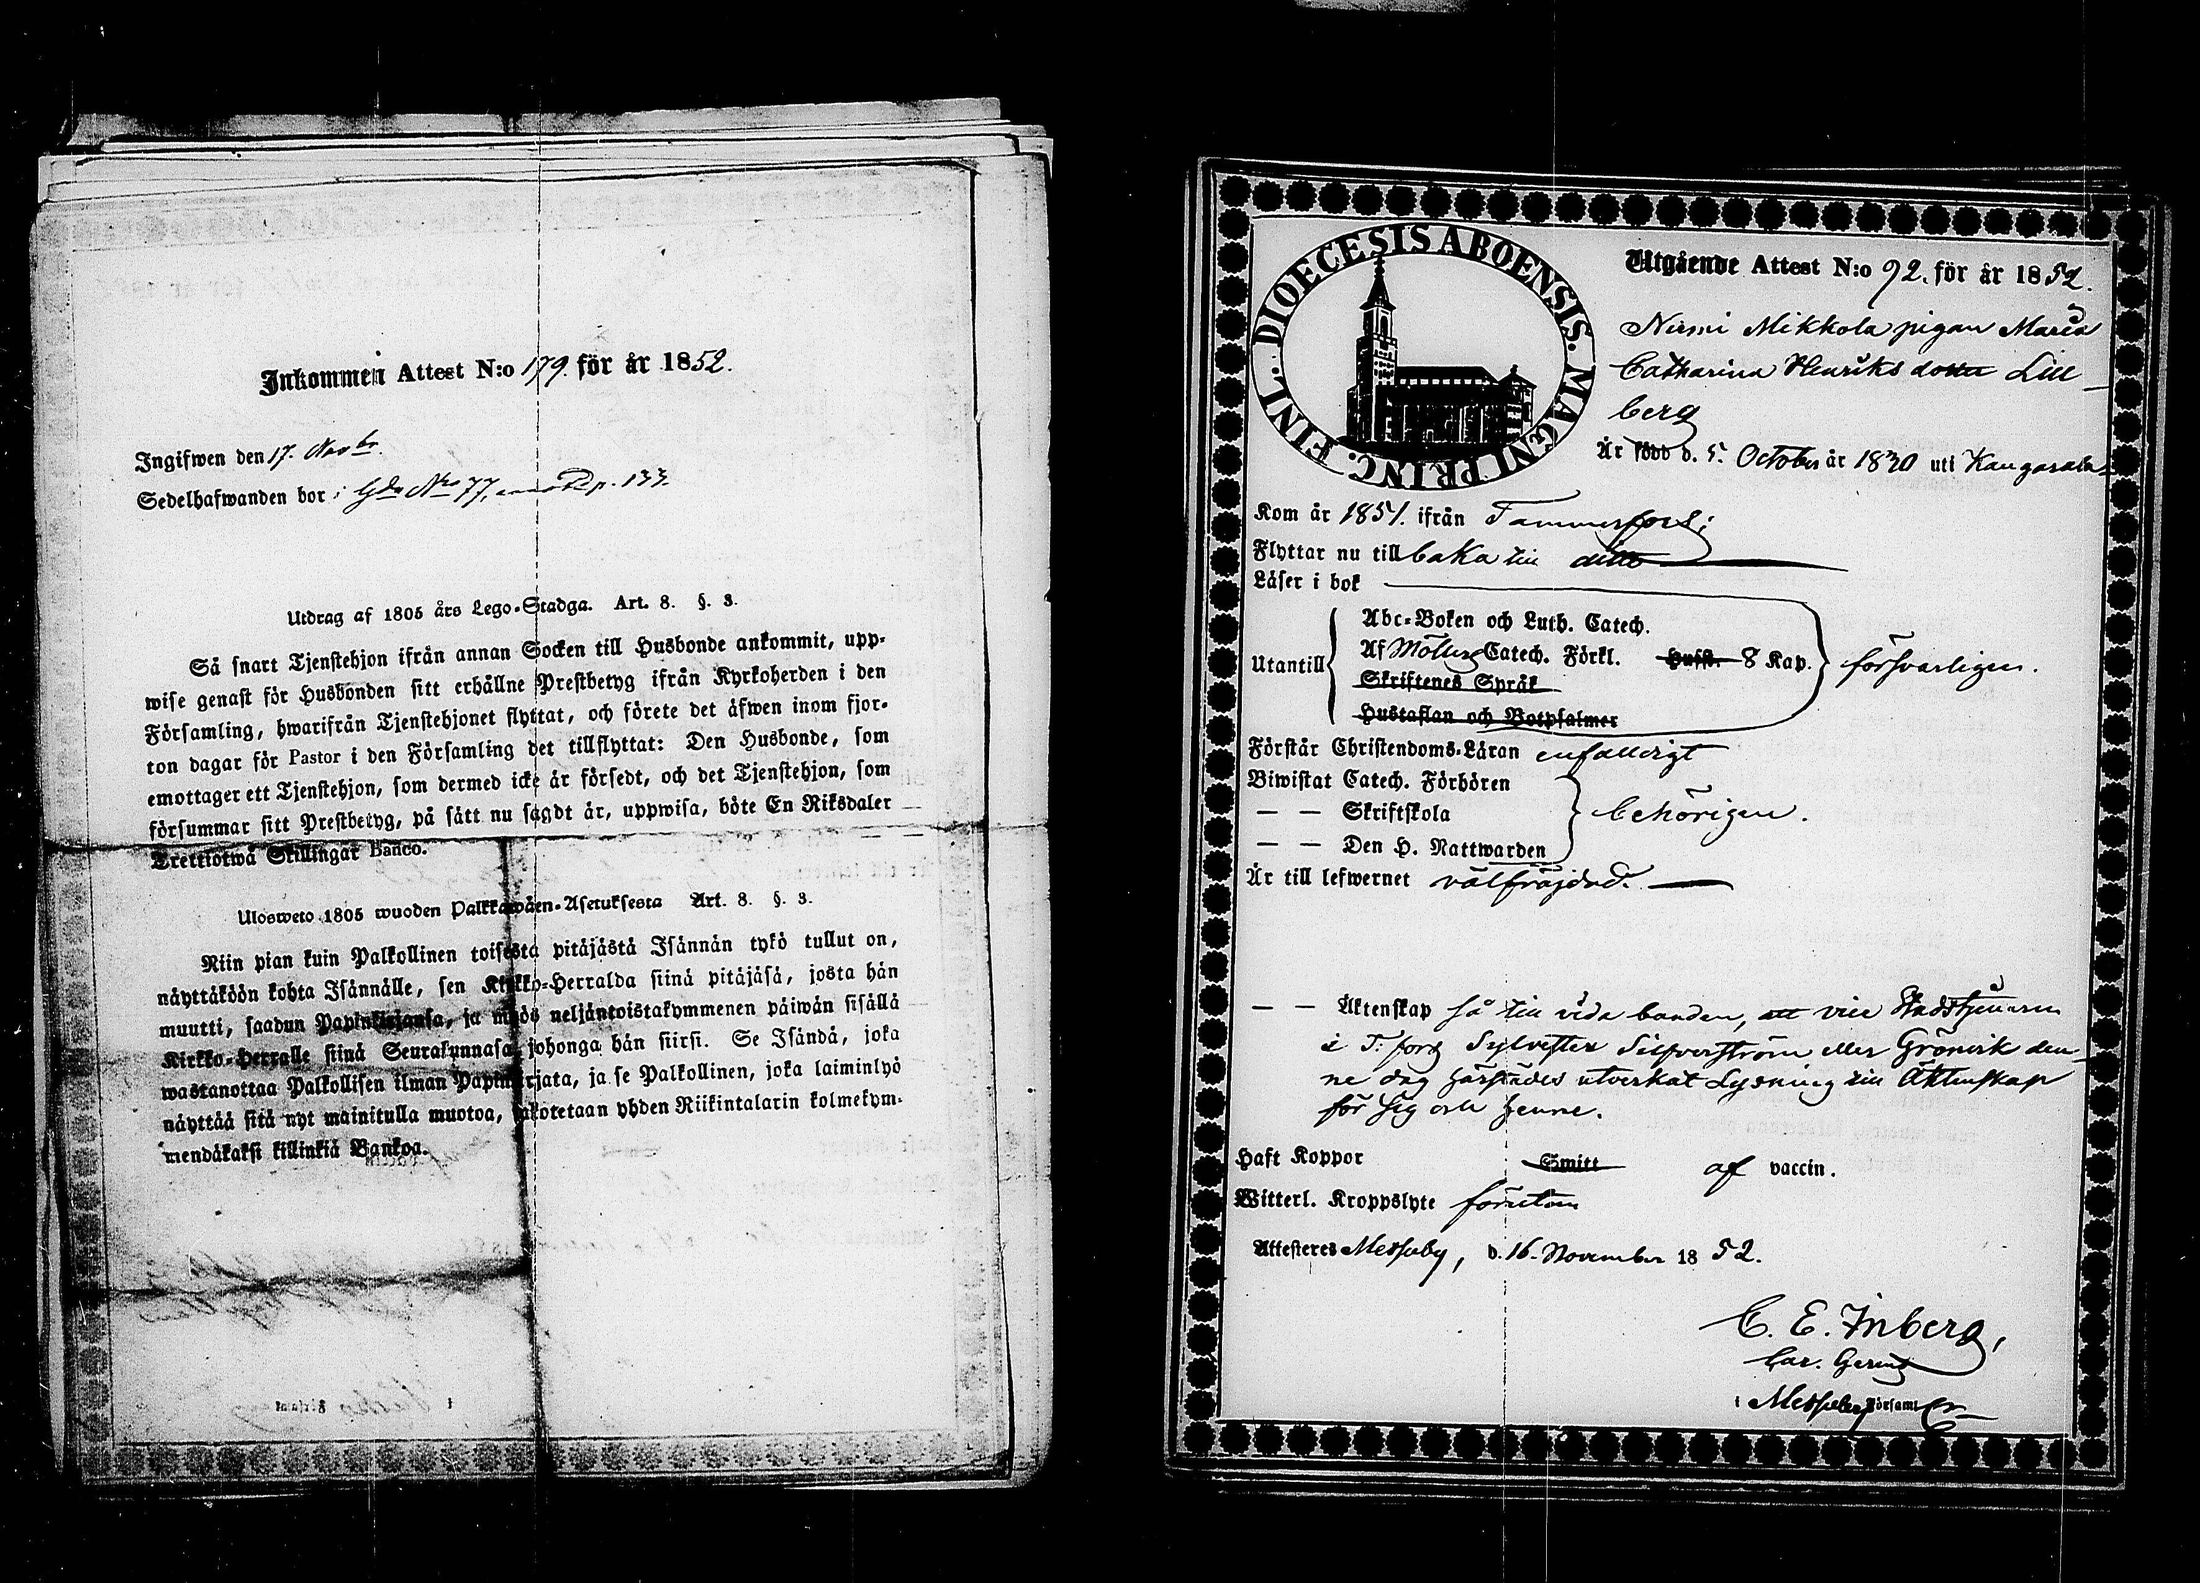 Inkommen Attest N:o 179. för år 1852.
Ingifwen den 17. Novbr.
Sedelhafwanden bor i Gdn Nro 77, p. 133.
Utdrag af 1805 års Lego-Stadga. Art. 8. §. 3.
Så snart Tjenstehjon ifrån annan Socken till Husbonde ankommit, upp-
wise genast för Husbonden sitt erhållne Prestbetyg ifrån Kyrkoherden i den
Församling, hwarifrån Tjenstehjonet flyttat, och förete det äfwen inom fjor-
ton dagar för Pastor i den Församling det tillflyttat: Den Husbonde, som
emottager ett Tjenstehjon, som dermed icke är försedt, och det Tjenstehjon, som
försummar sitt Prestbetyg, på sätt nu sagdt är, uppwisa, böte En Riksdaler
Trettiotwå Skillingar Banco.
Ulosweto 1805 wuoden Palkkawäen-Asetuksesta Art. 8. §. 3.
Niin pian kuin Palkollinen toisesta pitäjästä Isännän tykö tullut on,
näyttäköön kohta Isännälle, sen Kirkko-Herralda siinä pitäjäsä, josta hän
muutti, saadun Papinkirjansa, ja myös neljäntoistakymmenen päiwän sisällä
Kirkko-Herralle siinä Seurakunnasa, johonga hän siirsi. Se Isändä, joka
wastanottaa Palkollisen ilman Papinkirjata, ja se Palkollinen, joka laiminlyö
näyttää sitä nyt mainitulla muotoa, sakotetaan yhden Riikintalarin kolmekym-
mendäkaksi killinkiä Bankoa.
DIOECESIS ABOENSIS. MAGNI PRINC. FINL.
Utgående Attest N:o 92. för år 1852.
Niemi Mikkola pigan Maria
Catharina Henriksdotter Lill-
berg
Är född d. 5. October år 1830 uti Kangasala
Kom år 1851. ifrån Tammerfors;
Flyttar nu till baka till ditto
Läser i bok
Utantill
Abc-Boken och Luth. Catech.
Af Möllers Catech. Förkl. Hufst. 8 Kap.
Skriftenes Språk
Hustaflan och Botpsalmer
försvarligen.
Förstår Christendoms-Läran enfalldigt
Biwistat Catech. Förhören
— — Skriftskola
— — Den H. Nattwarden
behörigen.
Är till lefwernet välfräjdad.
— — Äktenskap så till vida bunden, att vice Stadstjenaren
i T:fors Sylvester Silfverström eller Grönvik den-
ne dag härstädes utverkat Lysning till Äktenskap
för sig och henne.
Haft Koppor Smitt af vaccin.
Witterl. Kroppslyte förutan
Attesteres Messuby, d. 16. November 1852.
C. E. Inberg,
i Messuby Församl